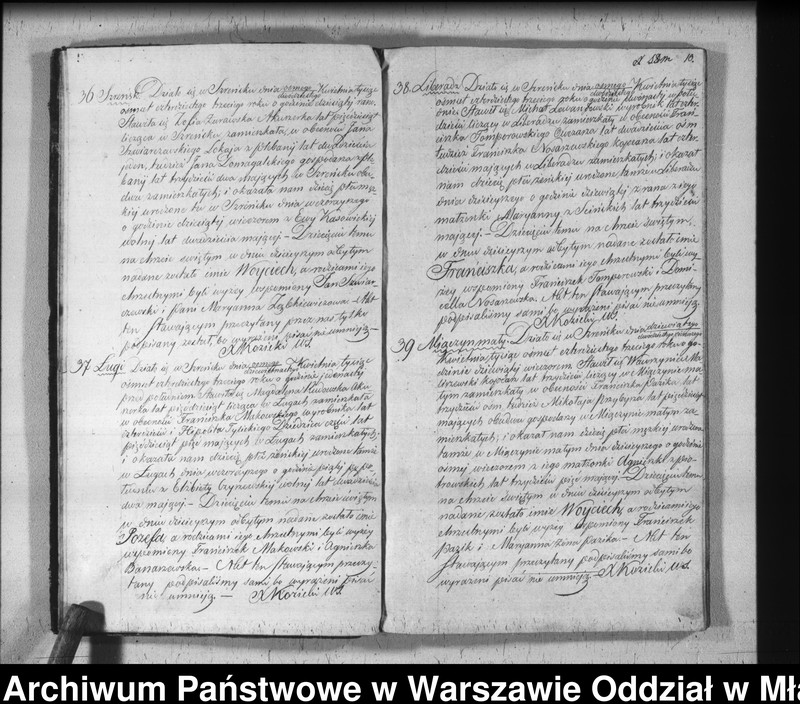 36 Szreńsk. Działo się w Szreńsku dnia ósmego dwudziestego Kwietnia tysiąc
ośmset czterdziestego trzeciego roku o godzinie dziesiątej rano
Stawiła się Zofia Zurawska Akuszerka lat pięćdziesiąt
licząca w Szreńsku zamieszkała, w obecności Jana
lat dwadzieścia
jeden, tudzież Jana Domagalskiego gospodarza z ple-
banij lat trzydzieści dwa mających w Szreńsku oby-
dwa zamieszkałych; i okazała nam dziecię płci męz-
kiej urodzone tu w Szreńsku dnia wczorajszego
o godzinie dziesiątej wieczorem z Ewy Kasowickiej
wolnej lat dwadzieścia mającej – Dziecięciu temu
na Chrzcie świętym w dniu dzisiejszym odbytym
nadane zostało imie Woyciech, a rodzicami jego
Chrzestnymi byli wyżej wspomniony Jan
i Pani Maryanna – Akt
ten stawającym przeczytany przez nas tylko
podpisany został bo wyrażeni pisać nie umnieją –
X Kozicki
37 Ługi Działo się w Szreńsku dnia ósmego Kwietnia tysiąc
ośmset czterdziestego trzeciego roku o godzinie jedenastej
przed południem Stawiła się Magdalena Aku-
szerka lat pięćdziesiąt licząca w Ługach zamieszkała
w obecności Franciszka Makowskiego wyrobnika lat
i Hipolita Dziedzica części lat
pięćdziesiąt pięć mających w Ługach zamieszkałych,
i okazała nam dziecię płci żeńskiej urodzone tamże
w Ługach dnia wczorajszego o godzinie piątej po po-
łudniu z Elżbiety wolnej lat dwadzieścia
dwa mającej – Dziecięciu temu na Chrzcie świętym
w dniu dzisiejszym odbytym nadane zostało imie
Józefa a rodzicami jego Chrzestnymi byli wyżej
wspomniony Franciszek Makowski i Agnieszka
Banaszewska – Akt ten stawającym przeczy-
tany podpisaliśmy sami bo wyrażeni pisać
nie umnieją – X Kozicki
10.
38. Liberadz Działo się w Szreńsku dnia ósmego Kwietnia tysiąc
ośmset czterdziestego trzeciego roku o godzinie
Stawił się Michał Lewandowski wyrobnik lat czter-
dzieści liczący w Liberadzu zamieszkały w obecności Fran-
ciszka Tomporowskiego Owczarza lat dwadzieścia ośm
tudzież Franciszka Nosarzewskiego kopczarza lat czter-
dzieści mających w Liberadzu zamieszkałych; i okazał
nam dziecię płci żeńskiej urodzone tamże w Liberadzu
dnia dzisiejszego o godzinie dziewiątej z rana z jego
małżonki Maryanny z lat trzydzieści
mającej – Dziecięciu temu na Chrzcie świętym,
w dniu dzisiejszym odbytym nadane zostało imie
Franciszka, a rodzicami jego Chrzestnymi byli wy-
żej wspomniony Franciszek Tomporowski i Domi-
cella Nosarzewska. Akt ten stawającym przeczytany
podpisaliśmy sami bo wyrażeni pisać nie umnieją
X Kozicki
39 Miączyn mały. Działo się w Szreńsku dnia dziewiątego
Kwietnia tysiąc ośmset czterdziestego trzeciego roku o go-
dzinie dziewiątej wieczorem Stawił się Wawrzyniec
lat trzydzieści liczący w Miączynie ma-
łym zamieszkały w obecności Franciszka Pazika, lat
trzydzieści ośm tudzież Mikołaja Przybysza lat pięćdziesiąt
mających obudwu gospodarzy w Miączynie małym za-
mieszkałych; i okazał nam dziecię płci męzkiej urodzone
tamże w Miączynie małym dnia dzisiejszego o godzinie
ósmej wieczorem z jego małżonki Agnieszki z
lat trzydzieści pięć mającej – Dziecięciu temu
na Chrzcie świętym w dniu dzisiejszym odbytym
nadane zostało imie Woyciech, a rodzicami jego
Chrzestnymi byli wyżej wspomniony Franciszek
Pazik i Maryanna żona Pazika – Akt ten
stawającym przeczytany podpisaliśmy sami bo
wyrażeni pisać nie umnieją – X Kozicki
Archiwum Państwowe w Warszawie Oddział w Mła